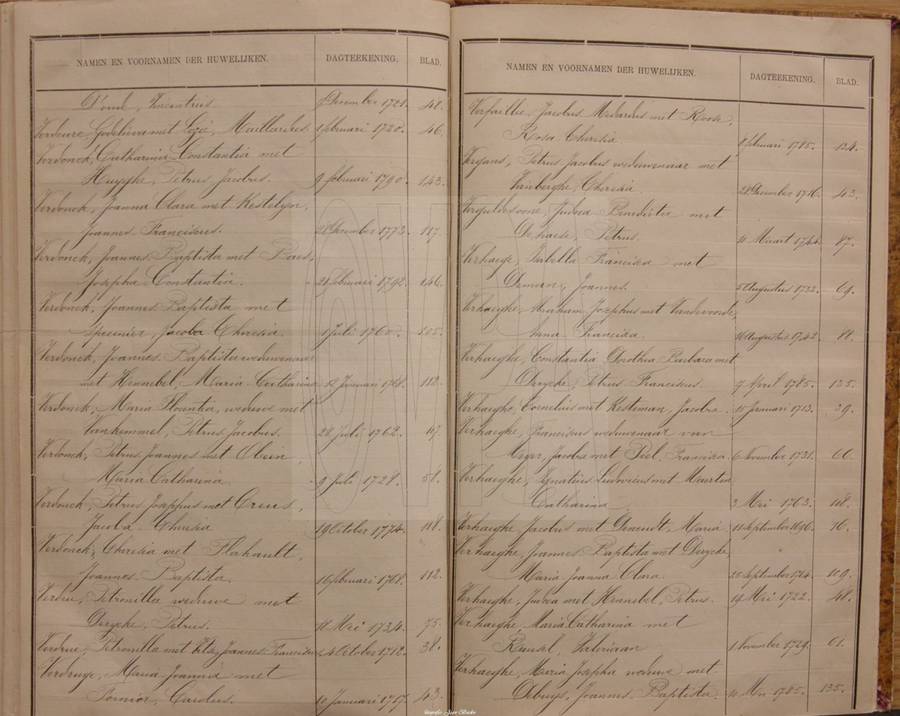 NAMEN EN VOORNAMEN DER HUWELIJKEN. DAGTEEKENING. BLAD.
December 1721. 40.
Verdeure, Godelieva met Maillard 1 februari 1720. 46.
Verdonck, Catharina Constantia met
Huyghe, Petrus Jacobus. 9 februari 1790. 143.
Verdonck, Joanna Clara met Kestelyn,
Joannes Franciscus. December 1773. 117.
Verdonck, Joannes Baptista met
Josepha Constantia. februari 1792. 146.
Verdonck, Joannes Baptista met
Jacoba Theresia. Juli 1760. 105.
Verdonck, Joannes Baptista weduwenaar
met Hennebel, Maria Catharina 12 Januari 1768. 112.
Verdonck, Maria weduwe met
Vankemmel, Petrus Jacobus. 28 Juli 1762. 107.
Verdonck, Petrus Joannes met
Maria Catharina. 9 Juli 1728. 58.
Verdonck, Petrus Josephus met
Jacoba Theresia 19 October 1774. 118.
Verdonck, Theresia met Flahault,
Joannes Baptista. 16 februari 1768. 112.
Petronilla weduwe met
Derycke, Petrus. Mei 1734. 75.
Petronilla met Joannes Franciscus 4 October 1712. 38.
Maria Joanna met
Carolus. 10 Januari 1717. 43.
NAMEN EN VOORNAMEN DER HUWELIJKEN. DAGTEEKENING. BLAD.
Verfaillie, Jacobus Medardus met Roose,
Rosa Theresia 8 februari 1785. 124.
Petrus Jacobus weduwenaar met
Vanberghe, Theresia. 28 December 1716. 43.
Judoca Benedicta met
Dehaese, Petrus. 11 Maart 1744. 87.
Verhaege, Isabella Francisca met
Deman, Joannes. 5 Augustus 1732. 69.
Verhaeghe, Abraham Josephus met Vandevoorde,
Anna Francisca Augustus 1742. 81.
Verhaeghe, Constantia Dorothea Barbara met
Derycke, Petrus Franciscus. 9 April 1785. 125.
Verhaeghe, Cornelius met Kesteman, Jacoba. 15 Januari 1713. 39.
Verhaeghe, Franciscus weduwenaar van
Jacoba met Francisca 6 November 1731. 66.
Verhaeghe, Ignatius Ludovicus met Maerten
Catharina 3 Mei 1763. 108.
Verhaeghe, Jacobus met Maria 11 September 1696. 16.
Verhaeghe, Joannes Baptista met Derycke,
Maria Joanna Clara. 25 September 1764. 109.
Verhaeghe, Judoca met Hennebel, Petrus. 19 Mei 1722. 48.
Verhaeghe, Maria Catharina met
Valeriaan 1 November 1729. 61.
Verhaeghe, Maria Josepha weduwe met
Debuys, Joannes Baptista. 10 Mei 1785. 135.